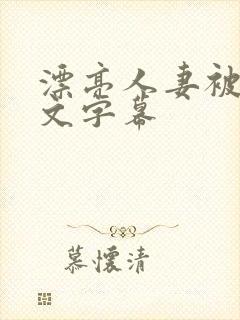 漂亮人妻被
文字幕
慕懷清